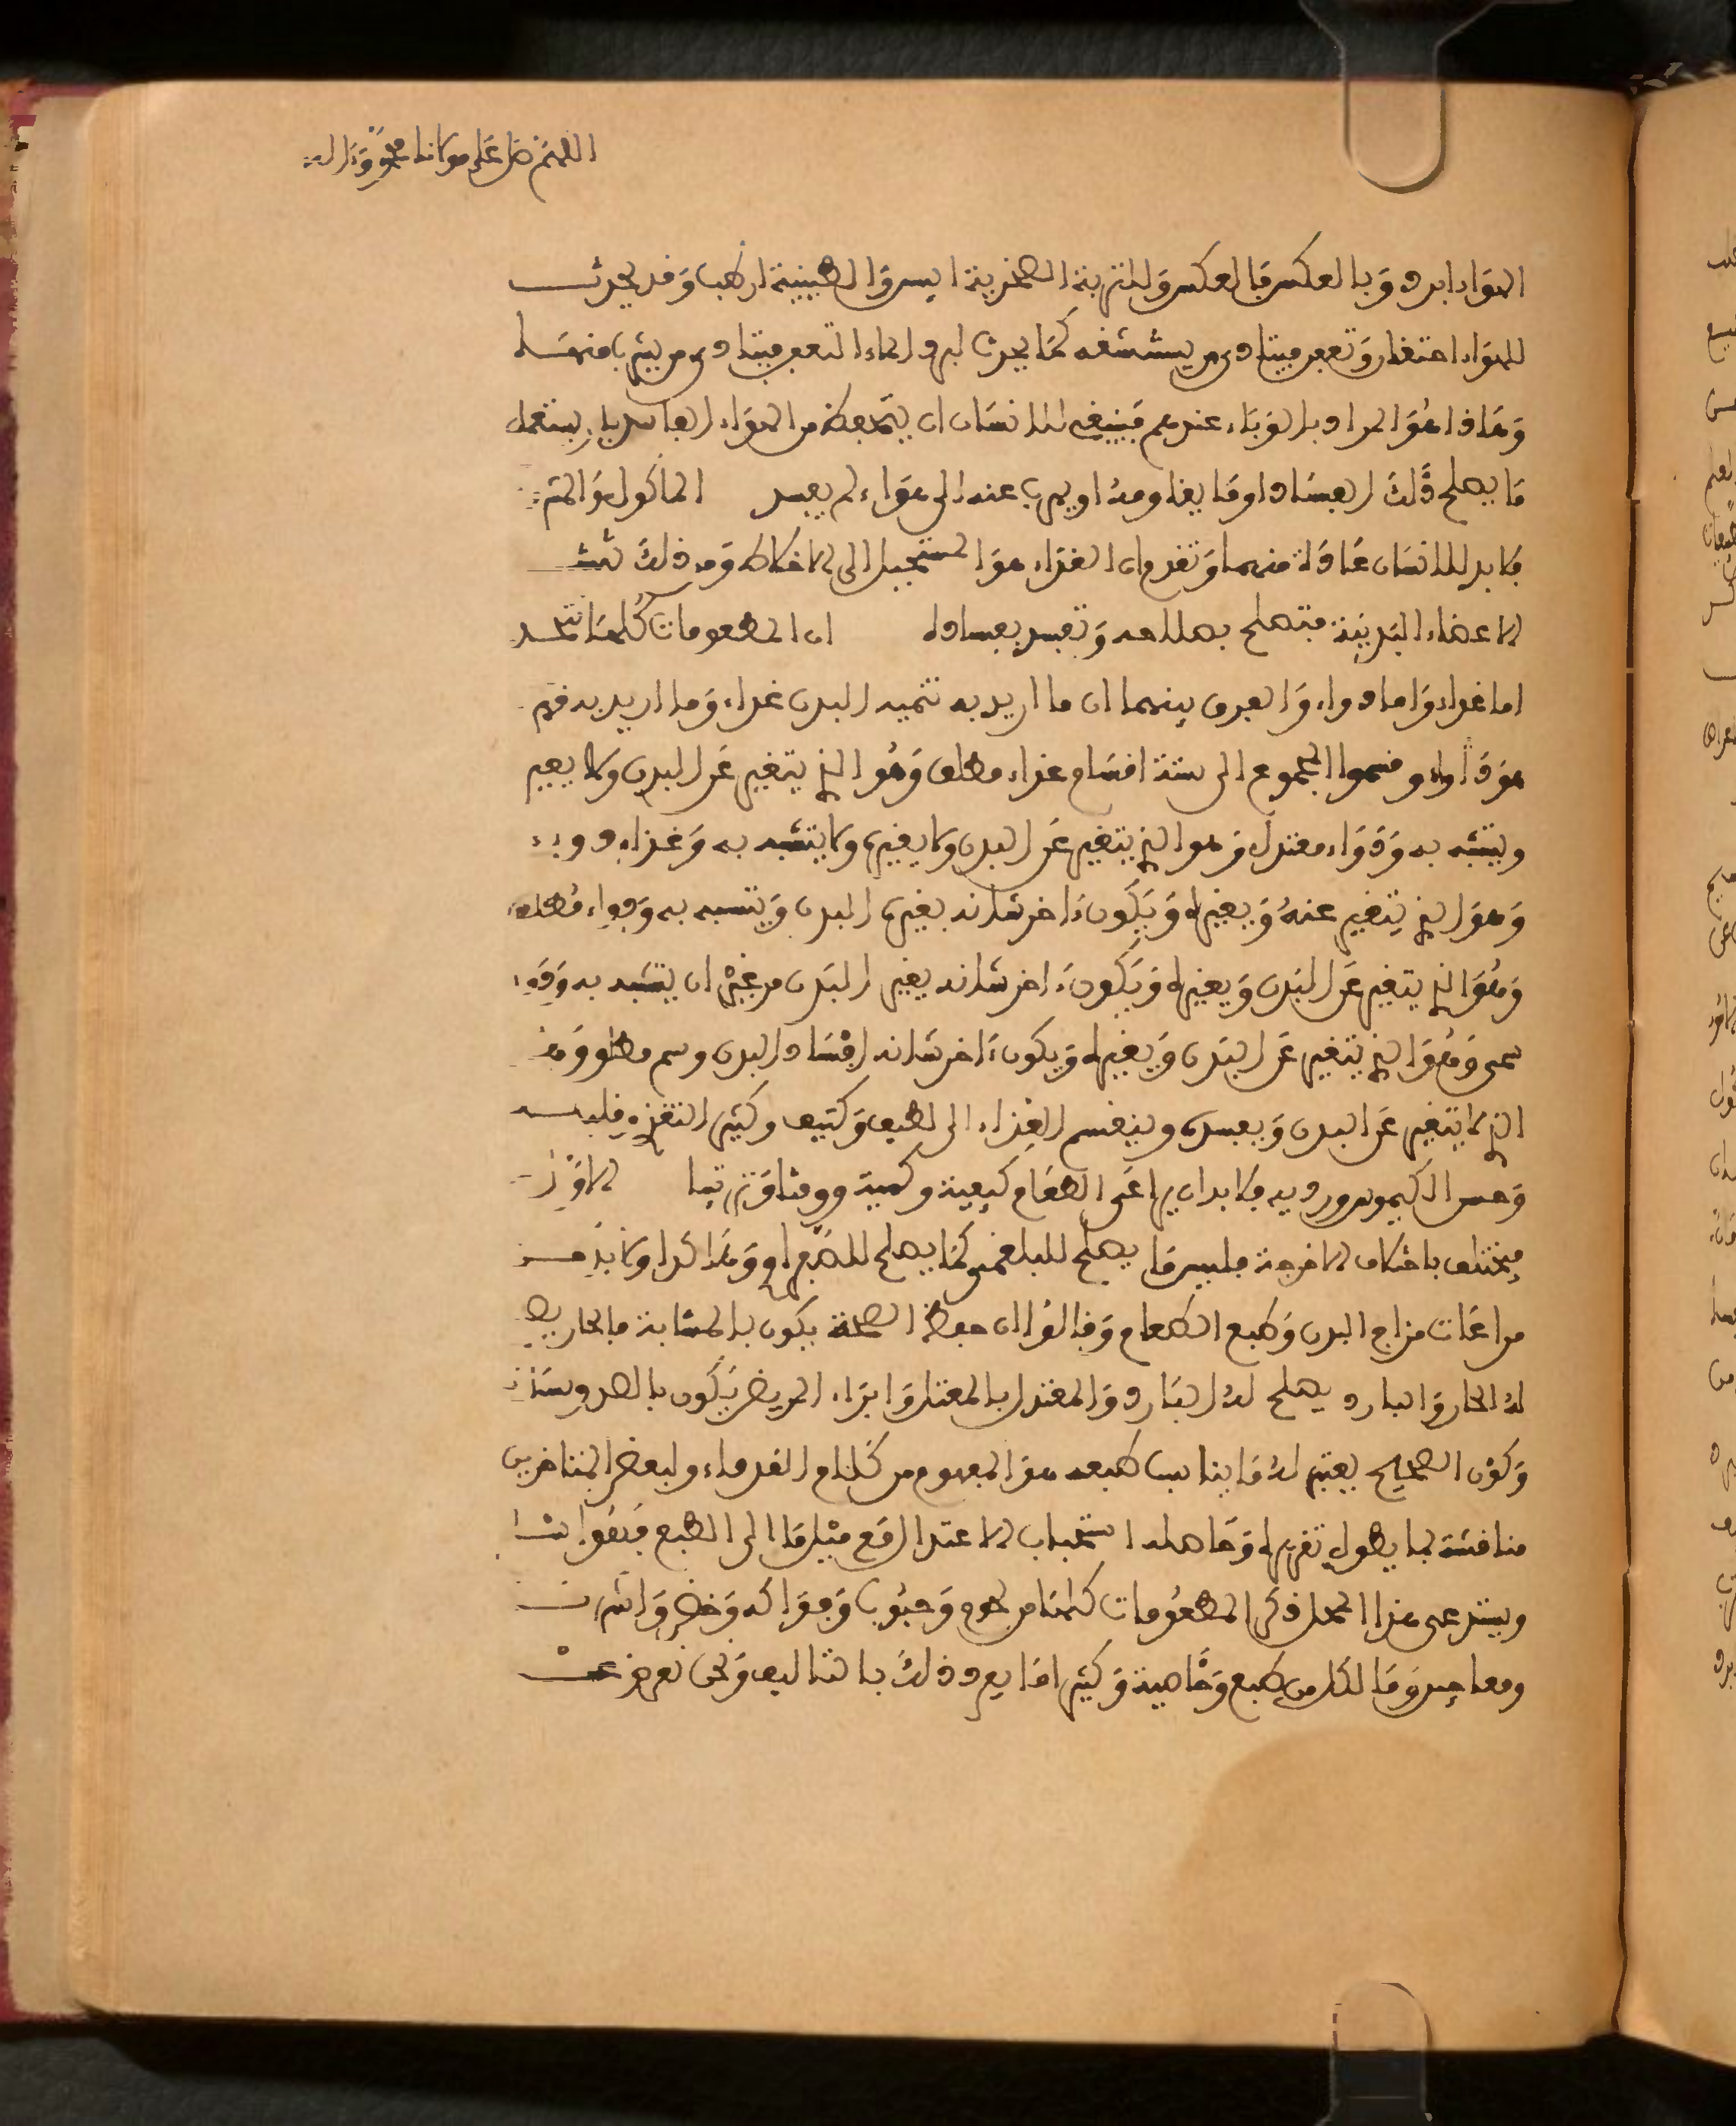 اللهم صل على مولانا محمد وآله
الهواء ابرد وبالعكس فالعكس والتربة الصخرية ايبس والطينية ارطب وقد يحدث
للهواء احتقان وتعفن فيتاذى من يستنشقه كما يحدث لبرد الماء التعفن فيتاذى من يشربا منه
وهاذا هو المراد بالوباء عندهم فينبغي للانسان ان يتحفظ من الهواء الفاسد بان يستعمل
ما يصلح ذلك الفساد او ما يقاومه او يهربا عنه الى هواء لم يفسد المأكول والمشـ
فلابد للانسان عادة منهما وتقدم ان الغذاء هو المستحيل الى الاخلاط ومن ذلك تنشـ
الاعضاء البدنية فتصلح بصلاحه وتفسد بفساده ان المطعومات كلها
اما غذاء واما دواء والفرق بينهما ان ما اريد به تنمية البدن غذاء وما اريد به
هو دواء وقسموا المجموع الى ستة اقسام غذاء مطلق وهو الذي يتغير عن البدن ولا يغير
ويتشبه به ودواء معتدل وهو الذي يتغير عن البدن ولا يغيره ولا يتشبه به وغذاء دوء
وهو الذي يتغير عنه ويغيره ويكون ءاخر شانه يغيره البدن ويتشبه به ودواء مطلق
وهو الذي يتغير عن البدن ويغيره ويكون ءاخر شانه يغير البدن من غير ان يتشبه به ودو
سمى وهو الذي يتغير عن البدن ويغيره ويكون ءاخر شانه افساد البدن وسم مطلق وهو
الذي لا يتغير عن البدن ويفسده وينقسم الغذاء الى لطيف وكثيف وكثير التغذي وقليله
وحسن الكيموس ورديه فلابد ان يراعى الطعام كيفية وكمية ووقتا وترتيبا الاوز
فيختلف باختلاف الامزجة فليس ما يصلح للبلغمي كما يصلح للصفراوي وهاكذا ولابد مـ
مراعات مزاج البدن وطبع الطعام وقالوا ان حفظ الصحة يكون بالمشابهة فالحار يصـ
له الحار والبارد يصلح له البارد والمعتدل بالمعتدل وابراء المريض يكون بالضد
وكون الصحيح يعتبر له ما يناسب طبعه هو المفهوم من كلام القدماء ولبعض المتاخرين
مناقشة لما يطول تقريره وحاصله استحباب الاعتدال مع ميل ما الى الطبع
ويستدعى هذا المحل ذكر المطعومات كلها من لحوم وحبوب وفواكه وخضر واشربـ
ومعاجين وما لكل من طبع وخاصية وكثيرا ما يفرد ذلك بالتاليف ونحن نعرض عنـ